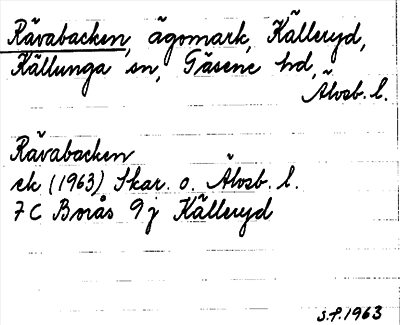 Rävabacken, ägomark, Källeryd,
Källunga sn, Gäsene hd,
Älvsb. l.
Rävabacken
ek (1963) Skar. o. Älvsb. l.
7 C Borås 9 j Källeryd
S.F. 1963